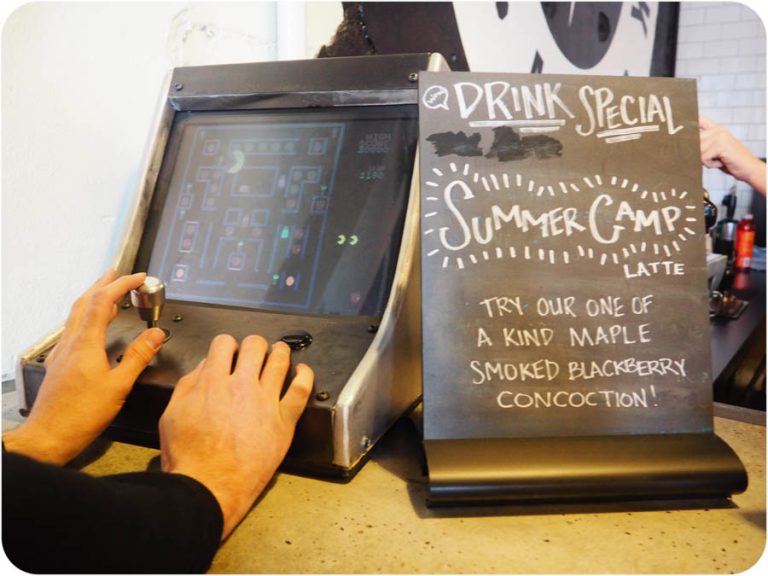 HIGH
SCORE
DRINK SPECIAL
SUMMER CAMP
LATTE
TRY OUR ONE OF
A KIND MAPLE
SMOKED BLACKBERRY
CONCOCTION!